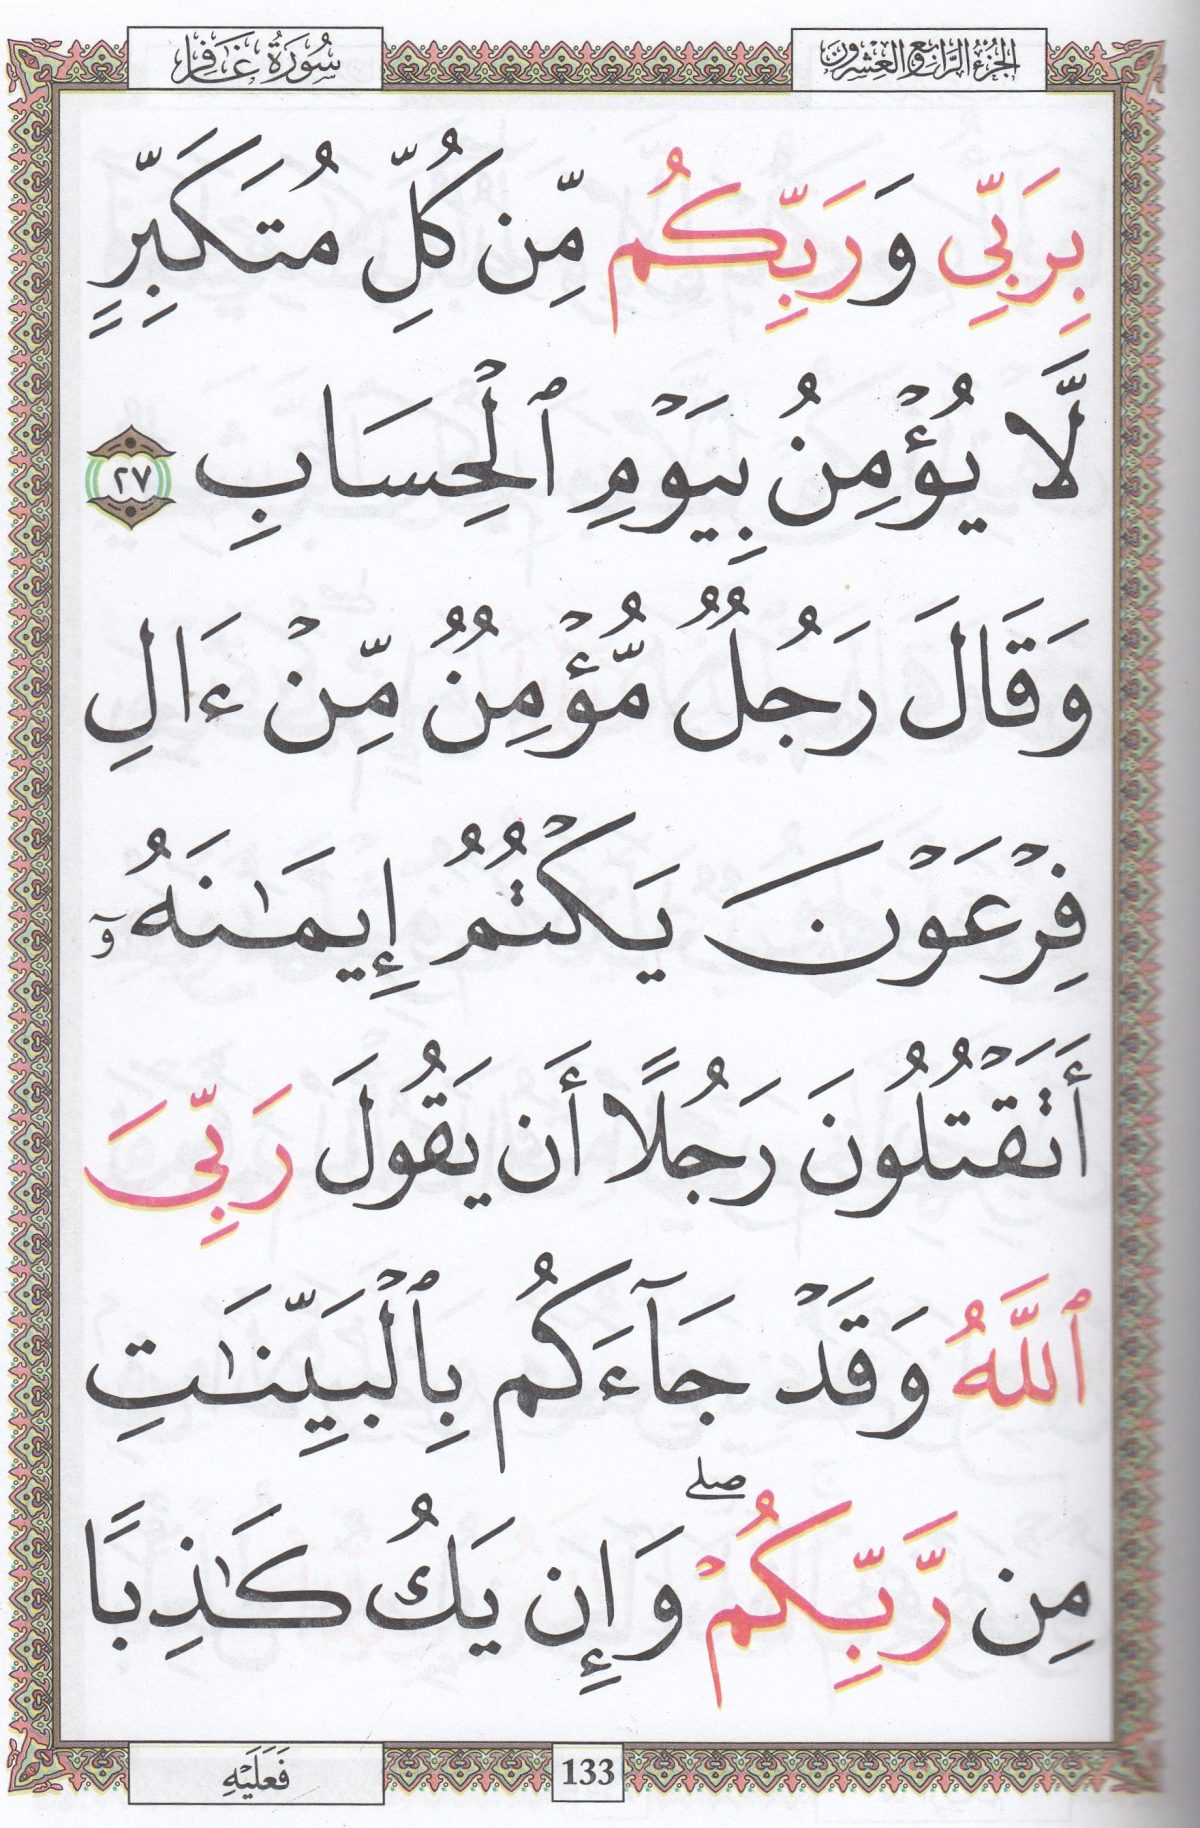 الجزء الرابع والعشرون
سُورَةُ غَافِرٍ
بِرَبِّي وَرَبِّكُم مِّن كُلِّ مُتَكَبِّرٍ
لَّا يُؤْمِنُ بِيَوْمِ ٱلْحِسَابِ ٢٧
وَقَالَ رَجُلٌ مُّؤْمِنٌ مِّنْ ءَالِ
فِرْعَوْنَ يَكْتُمُ إِيمَـٰنَهُۥٓ
أَتَقْتُلُونَ رَجُلًا أَن يَقُولَ رَبِّىَ
ٱللَّهُ وَقَدْ جَآءَكُم بِٱلْبَيِّنَـٰتِ
مِن رَّبِّكُمْ ۖ وَإِن يَكُ كَـٰذِبًا
133
فَعَلَيْهِ